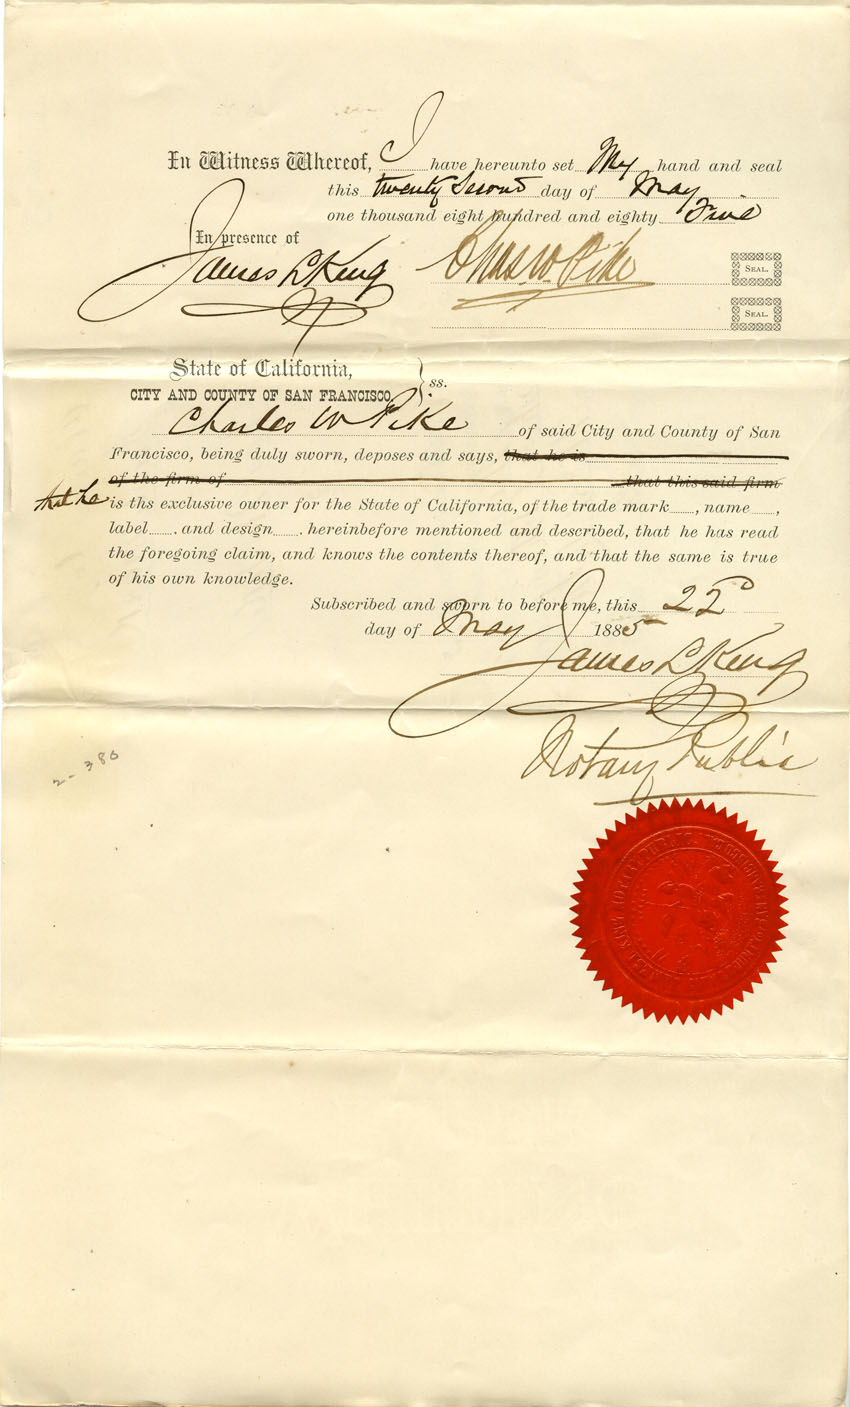 In Witness Whereof, I have hereunto set My hand and seal
this twenty Second day of May
one thousand eight hundred and eighty Five
In presence of
James L King Chas. W Pike SEAL.
SEAL.
State of California,
CITY AND COUNTY OF SAN FRANCISCO, } ss.
Charles W Pike of said City and County of San
Francisco, being duly sworn, deposes and says, that he is
of the firm of that this said firm
that he is ths exclusive owner for the State of California, of the trade mark, name,
label. and design. hereinbefore mentioned and described, that he has read
the foregoing claim, and knows the contents thereof, and that the same is true
of his own knowledge.
Subscribed and sworn to before me, this 22d
day of May 1885
James L King
Notary Public
2-386